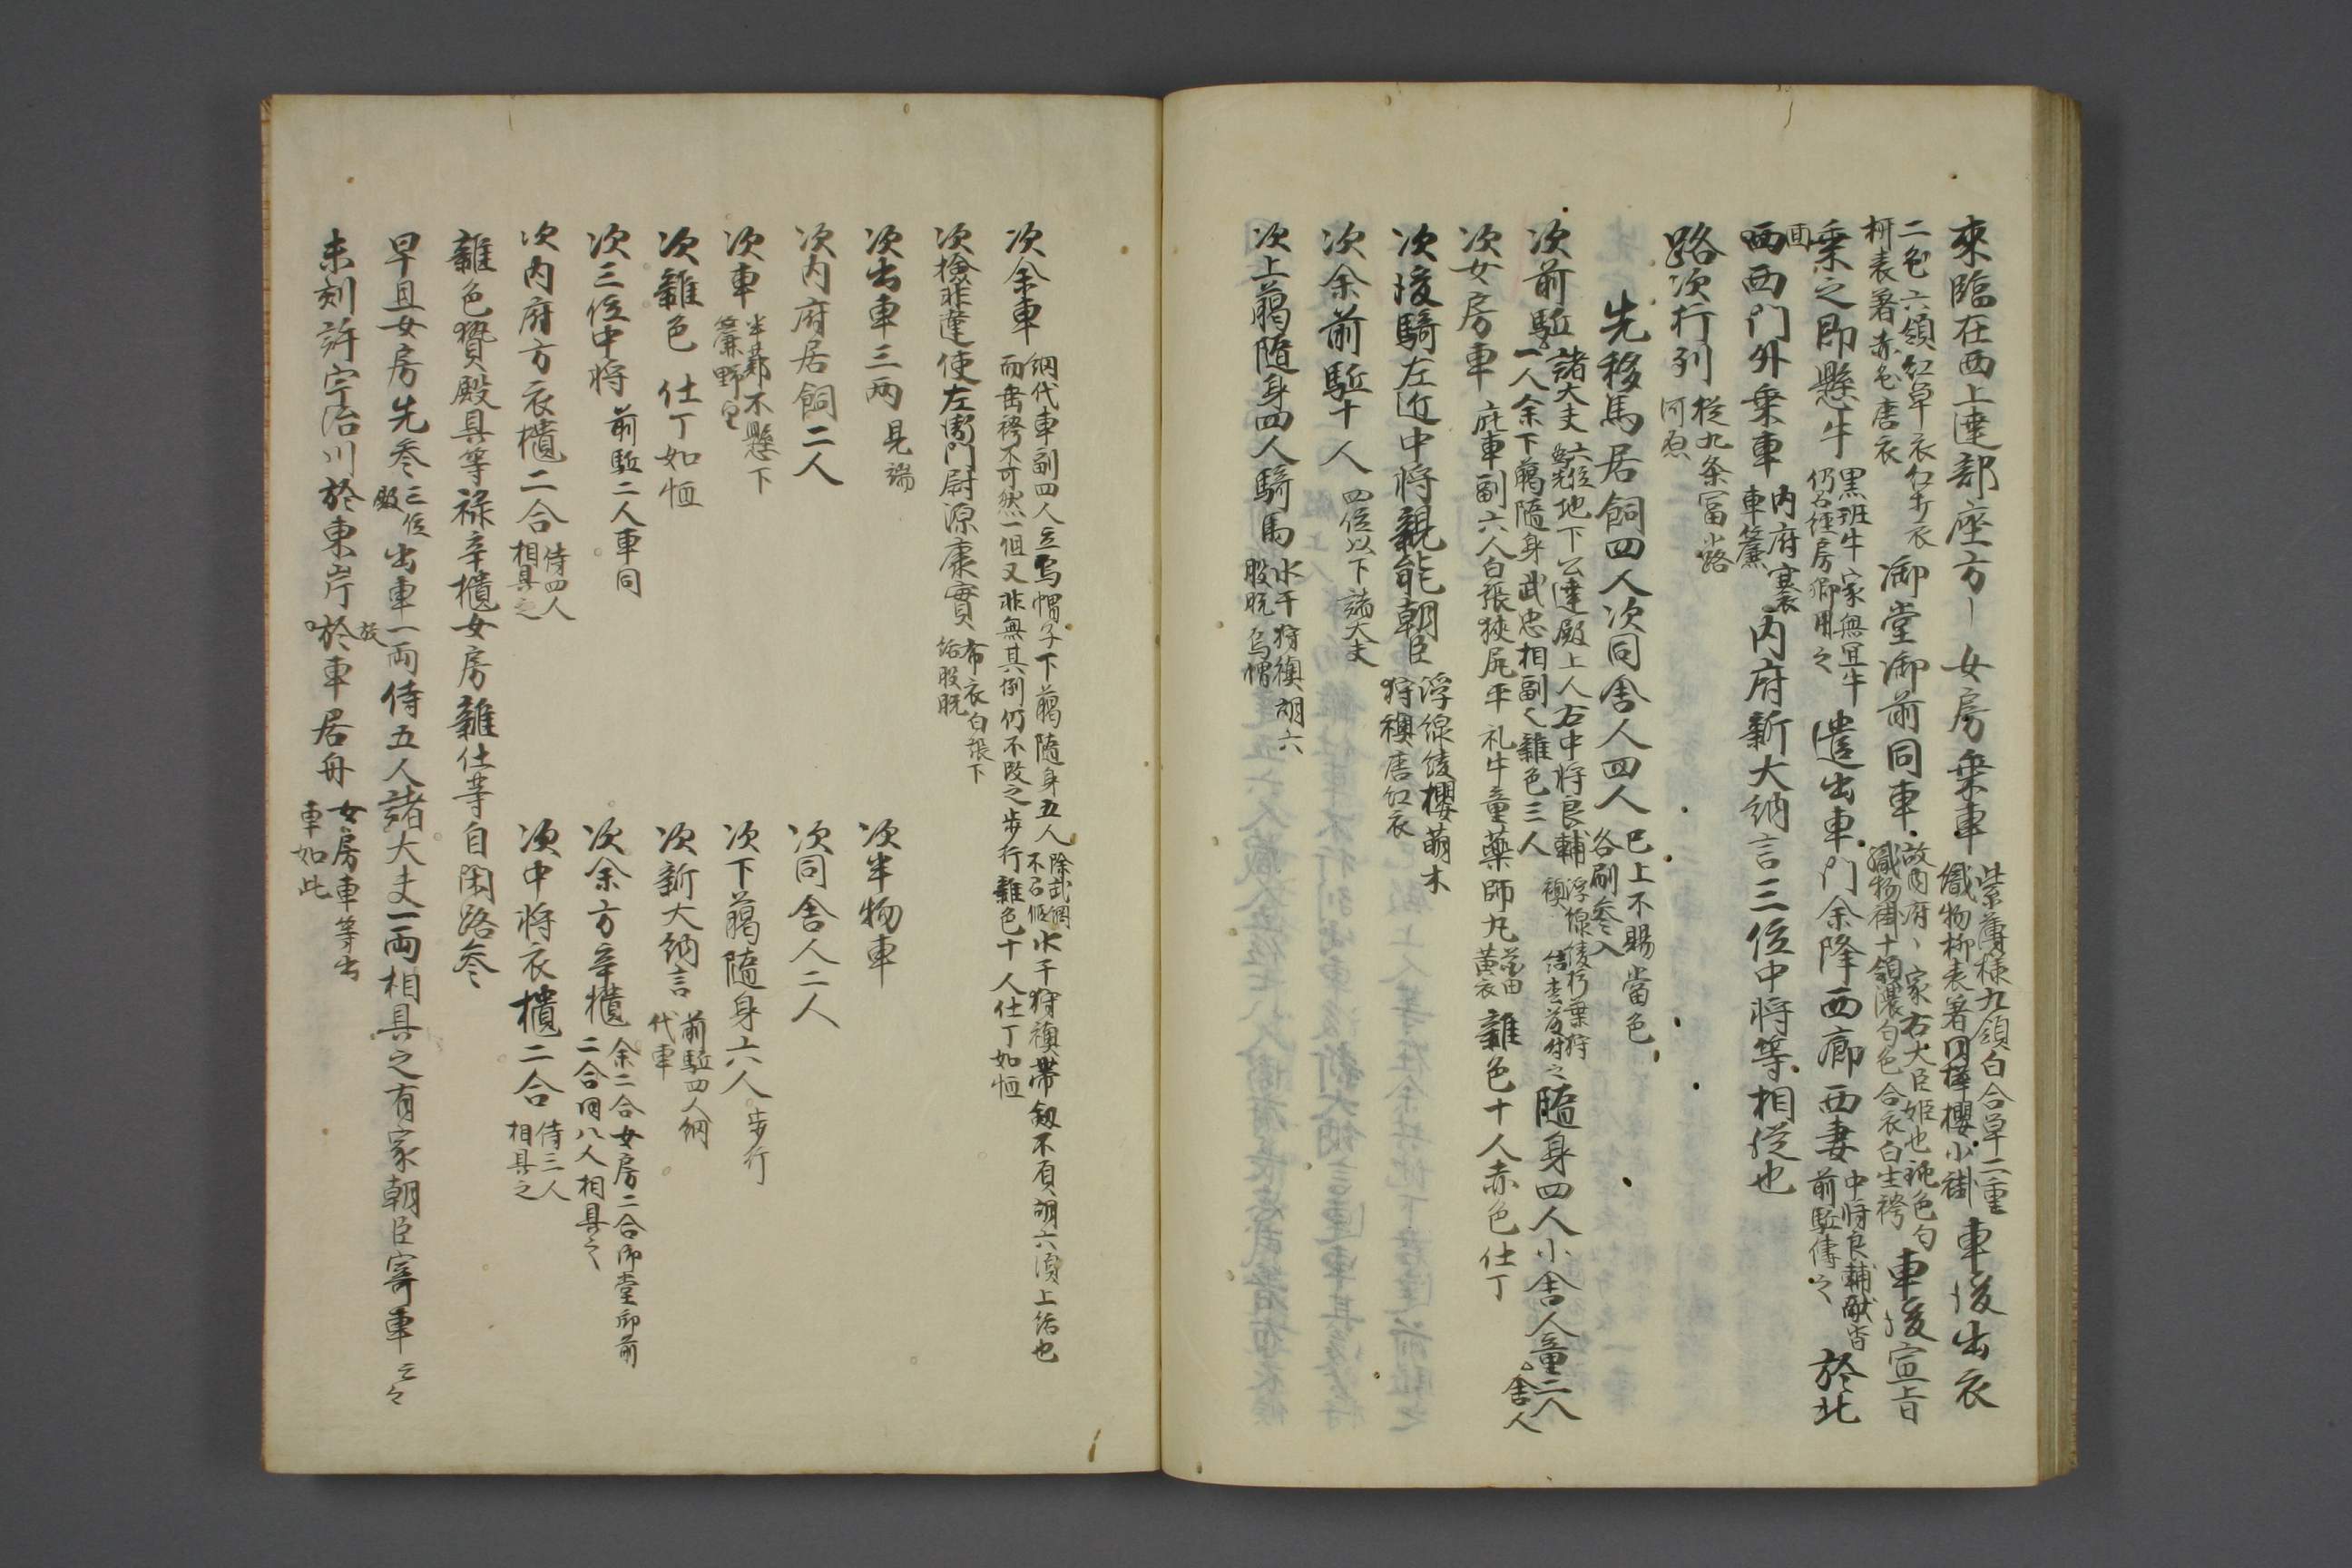 來臨在西上達部座方 女房乗車 紫薄様九領白合単二重
織物柳表著円樺櫻小褂 車後出衣
二色六領紅単衣紅打衣
柳表著赤色唐衣 御堂御前同車 故内府家右大臣姫也祇色匂
織物褂十領濃匂色合衣白生袴 車後宣旨
乗之即懸牛 黒斑牛家無冝牛
仍召経房卿用之 遣出車門余降西廊西妻 中将良輔献沓
前駈傳之 於北
面西門外乗車 内府褰
車簾 内府新大納言三位中将等相從也
路次行列 従九条冨小路
河原
先移馬居飼四人次同舎人四人 已上不賜當色
各刷参入
次前駈 諸大夫六位地下公達殿上人右中将良輔 浮線綾朽葉狩
襖
一人余下萬随身武忠相副之雜色三人 隨身四人小舎人童二人
次女房車 庇車副六人白張狹尻平礼牛童藥師丸 黄衣 雜色十人赤色仕丁 舎人
次後騎左近中将親能朝臣 浮線綾櫻萌木
狩襖唐紅衣
次余前駈十人 四位以下諸大夫
次上臈隨身四人騎馬 水干狩襖胡六
股脛烏帽
次余車 網代車副四人立烏帽子下臈隨身五人 水干狩襖帯劔不負胡六須上括也
而垂袴不可然一但又非無其例仍不改之歩行雜色十人仕丁如恒
次檢非違使左衛門尉源康實 布衣白張下
括股脛
次出車三両 晃端
次半物車
次内府居飼二人
次同舎人二人
次車 半蔀不懸下
簾野望
次下臈隨身六人 歩行
次雜色 仕丁如恒
次新大納言 前駈四人網
代車
次三位中将 前駈二人車同
次余方辛櫃 余二合女房二合御堂御前
二合用八人相具之
次内府方衣櫃二合 侍四人
相具之
次中将衣櫃二合 侍三人
相具之
雜色贄殿具等禄辛櫃女房雜仕等自閑路参
早旦女房先参 三位
殿 出車一両侍五人諸大夫一両相具之有家朝臣寄車 云々
未刻許宇治川於東岸於車居舟 女房車等出
車如此